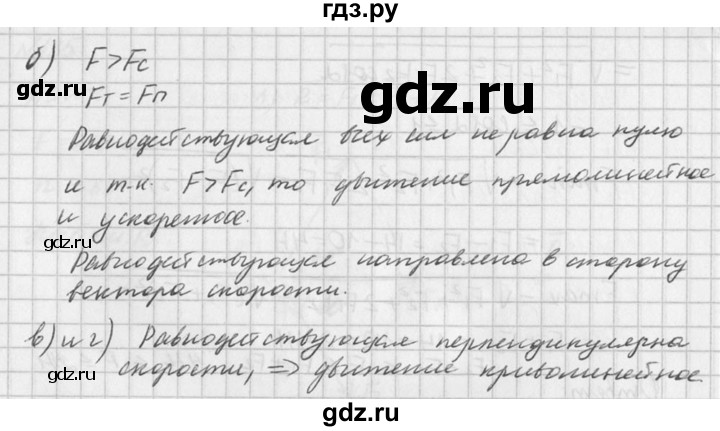 гдз.ру
б) F>Fc
gdz.ru
Fт = Fп
gdz.ru
Равнодействующая всех сил не равна нулю
и т.к. F>Fc, то движение прямолинейное
и ускоренное.
gdz.ru
Равнодействующая направлена в сторону
вектора скорости.
в) и г) Равнодействующая перпендикулярна
gdz.ru
скорости, => движение криволинейное
gdz.ru